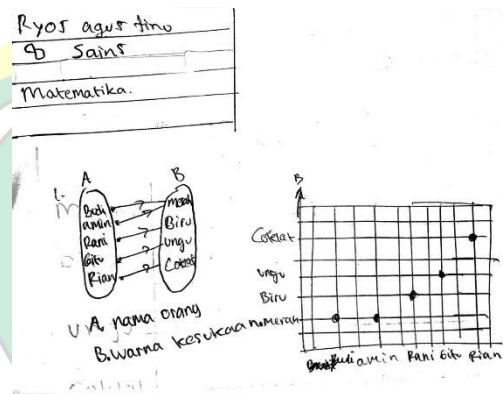 Ryos agustino
8 Sains
Matematika.
1.
A B
Budi
amin
Rani
Gitu
Rian
merah
Biru
ungu
Coklat
A. nama orang
B. warna kesukaan
B
Cokelat
ungu
Biru
Merah
Budi amin Rani Gitu Rian